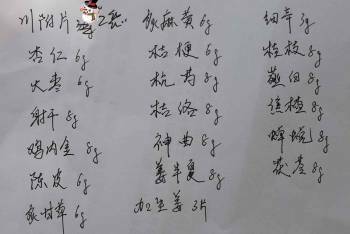 川附片 12g 炙麻黄 6g 细辛 3g
杏仁 6g 桔梗 6g 桂枝 8g
大枣 6g 杭芍 8g 燕白 8g
射干 8g 桔络 8g 焦楂 8g
鸡内金 8g 神曲 8g 蝉蜕 8g
陈皮 6g 姜半夏 8g 茯苓 8g
炙甘草 6g 加生姜 3片